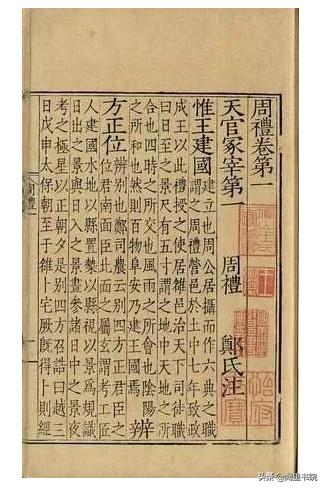 周禮卷第一
天官冢宰第一 周禮 鄭氏注
惟王建國
建立也周公居攝而作六典之職
謂之周禮營邑於土中七年致政
成王以此禮授之使居雒邑治天下司徒職
曰日至之景尺有五寸謂之地中天地之所
合也四時之所交也風雨之所會也陰陽
之所和也然則百物阜安乃建王國焉
辨
方正位
辨別也鄭司農云別四方正君臣之
位君南面臣北面之屬玄謂考工匠
人建國水地以縣置槷以縣視以景為規識
日出之景與日入之景晝參諸日中之景夜
考之極星以正朝夕是別四方召誥曰越三
日戊申太保朝至于雒卜宅厥既得卜則經
周禮一
头条 @阙里书院